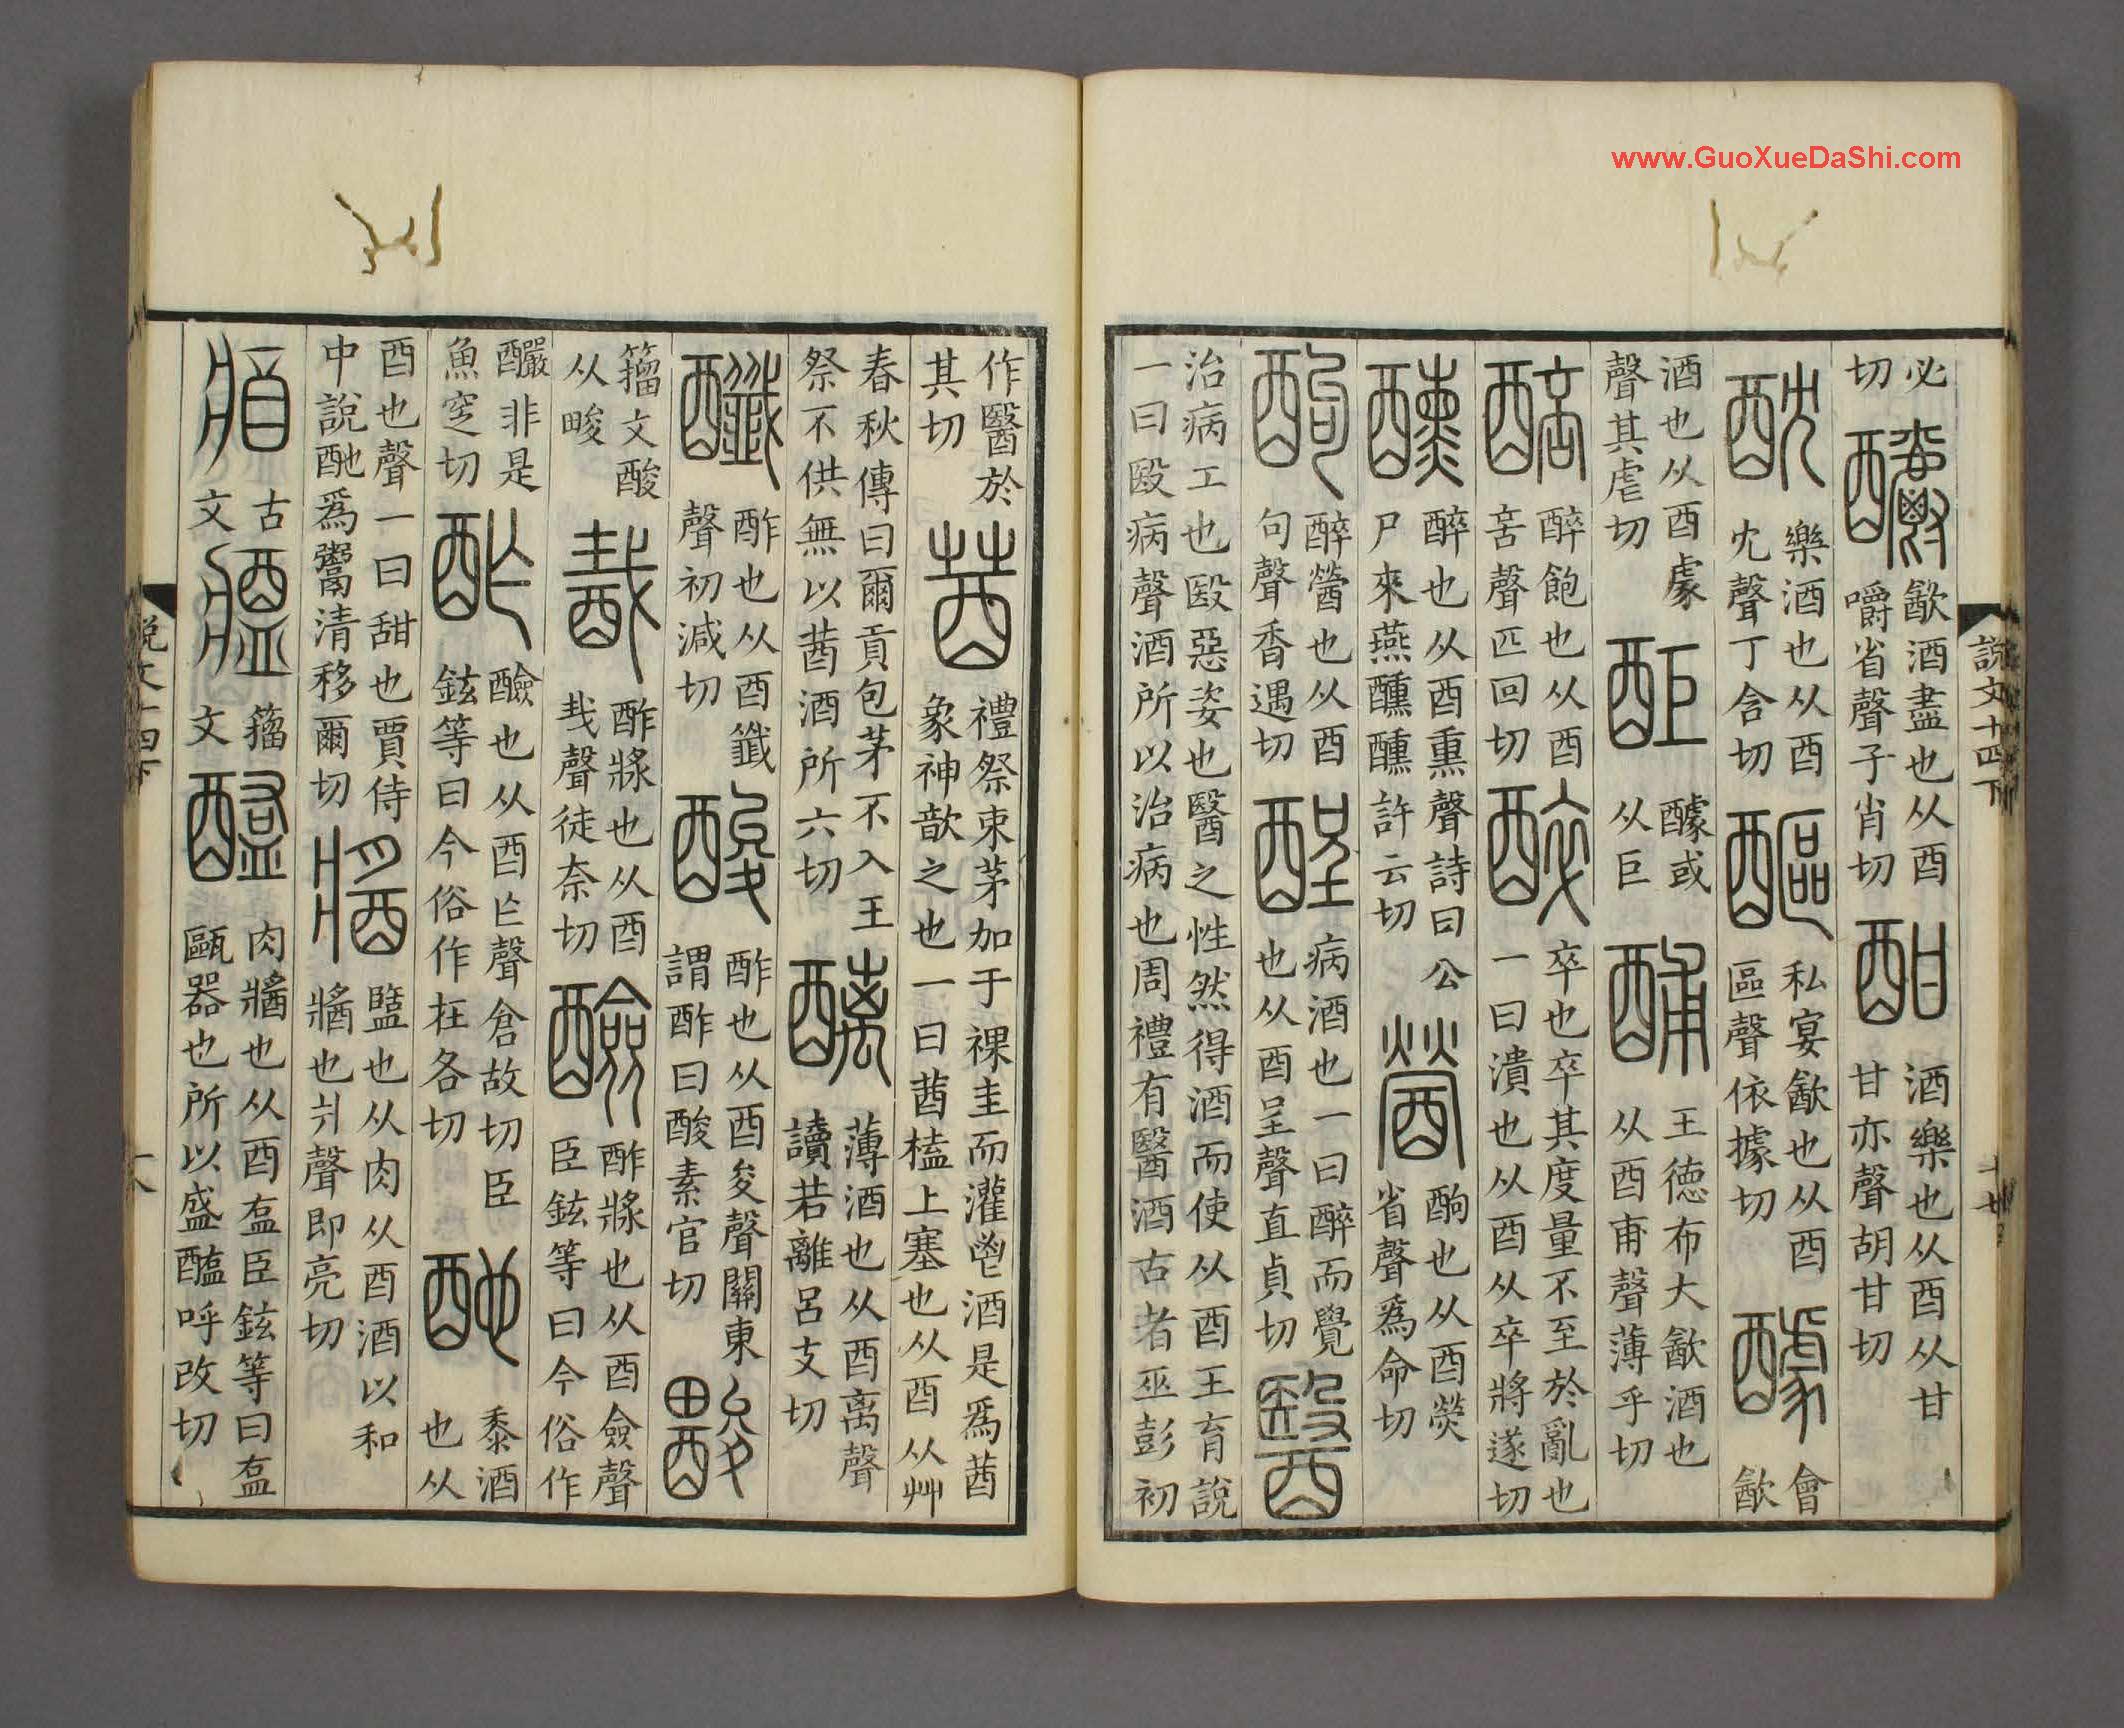 www.GuoXueDaShi.com
說文十四下
必切釂歠酒盡也从酉嚼省聲子肖切酣酒樂也从酉从甘甘亦聲胡甘切
酖樂酒也从酉冘聲丁含切醧私宴歠也从酉區聲依據切醵會歠
酒也从酉豦聲其虐切醵或从巨酺王德布大歠酒也从酉甫聲薄乎切
醅醉飽也从酉咅聲匹回切醉卒也卒其度量不至於亂也一曰潰也从酉从卒將遂切
醺醉也从酉熏聲詩曰公尸來燕醺醺許云切醟䣱也从酉熒省聲爲命切
䣱醉醟也从酉句聲香遇切酲病酒也一曰醉而覺也从酉呈聲直貞切醫
治病工也殹惡姿也醫之性然得酒而使从酉王育說一曰殹病聲酒所以治病也周禮有醫酒古者巫彭初
作醫於其切莤禮祭束茅加于祼圭而灌鬯酒是爲莤象神歆之也一曰莤榼上塞也从酉从艸
春秋傳曰爾貢包茅不入王祭不供無以莤酒所六切醨薄酒也从酉离聲讀若離呂支切
酢也从酉韱聲初減切酸酢也从酉夋聲關東謂酢曰酸素官切
籀文酸从畯酨酢漿也从酉𢦏聲徒奈切醶酢漿也从酉僉聲臣鉉等曰今俗作
釅非是魚窆切酢醶也从酉乍聲倉故切臣鉉等曰今俗作在各切酏黍酒也从
酉也聲一曰甜也賈侍中說酏爲鬻清移爾切醬盬也从肉从酉酒以和醬也爿聲即亮切
古文籀文醢肉醬也从酉𥁓臣鉉等曰𥁓甌器也所以盛醢呼改切
說文十四下
十八